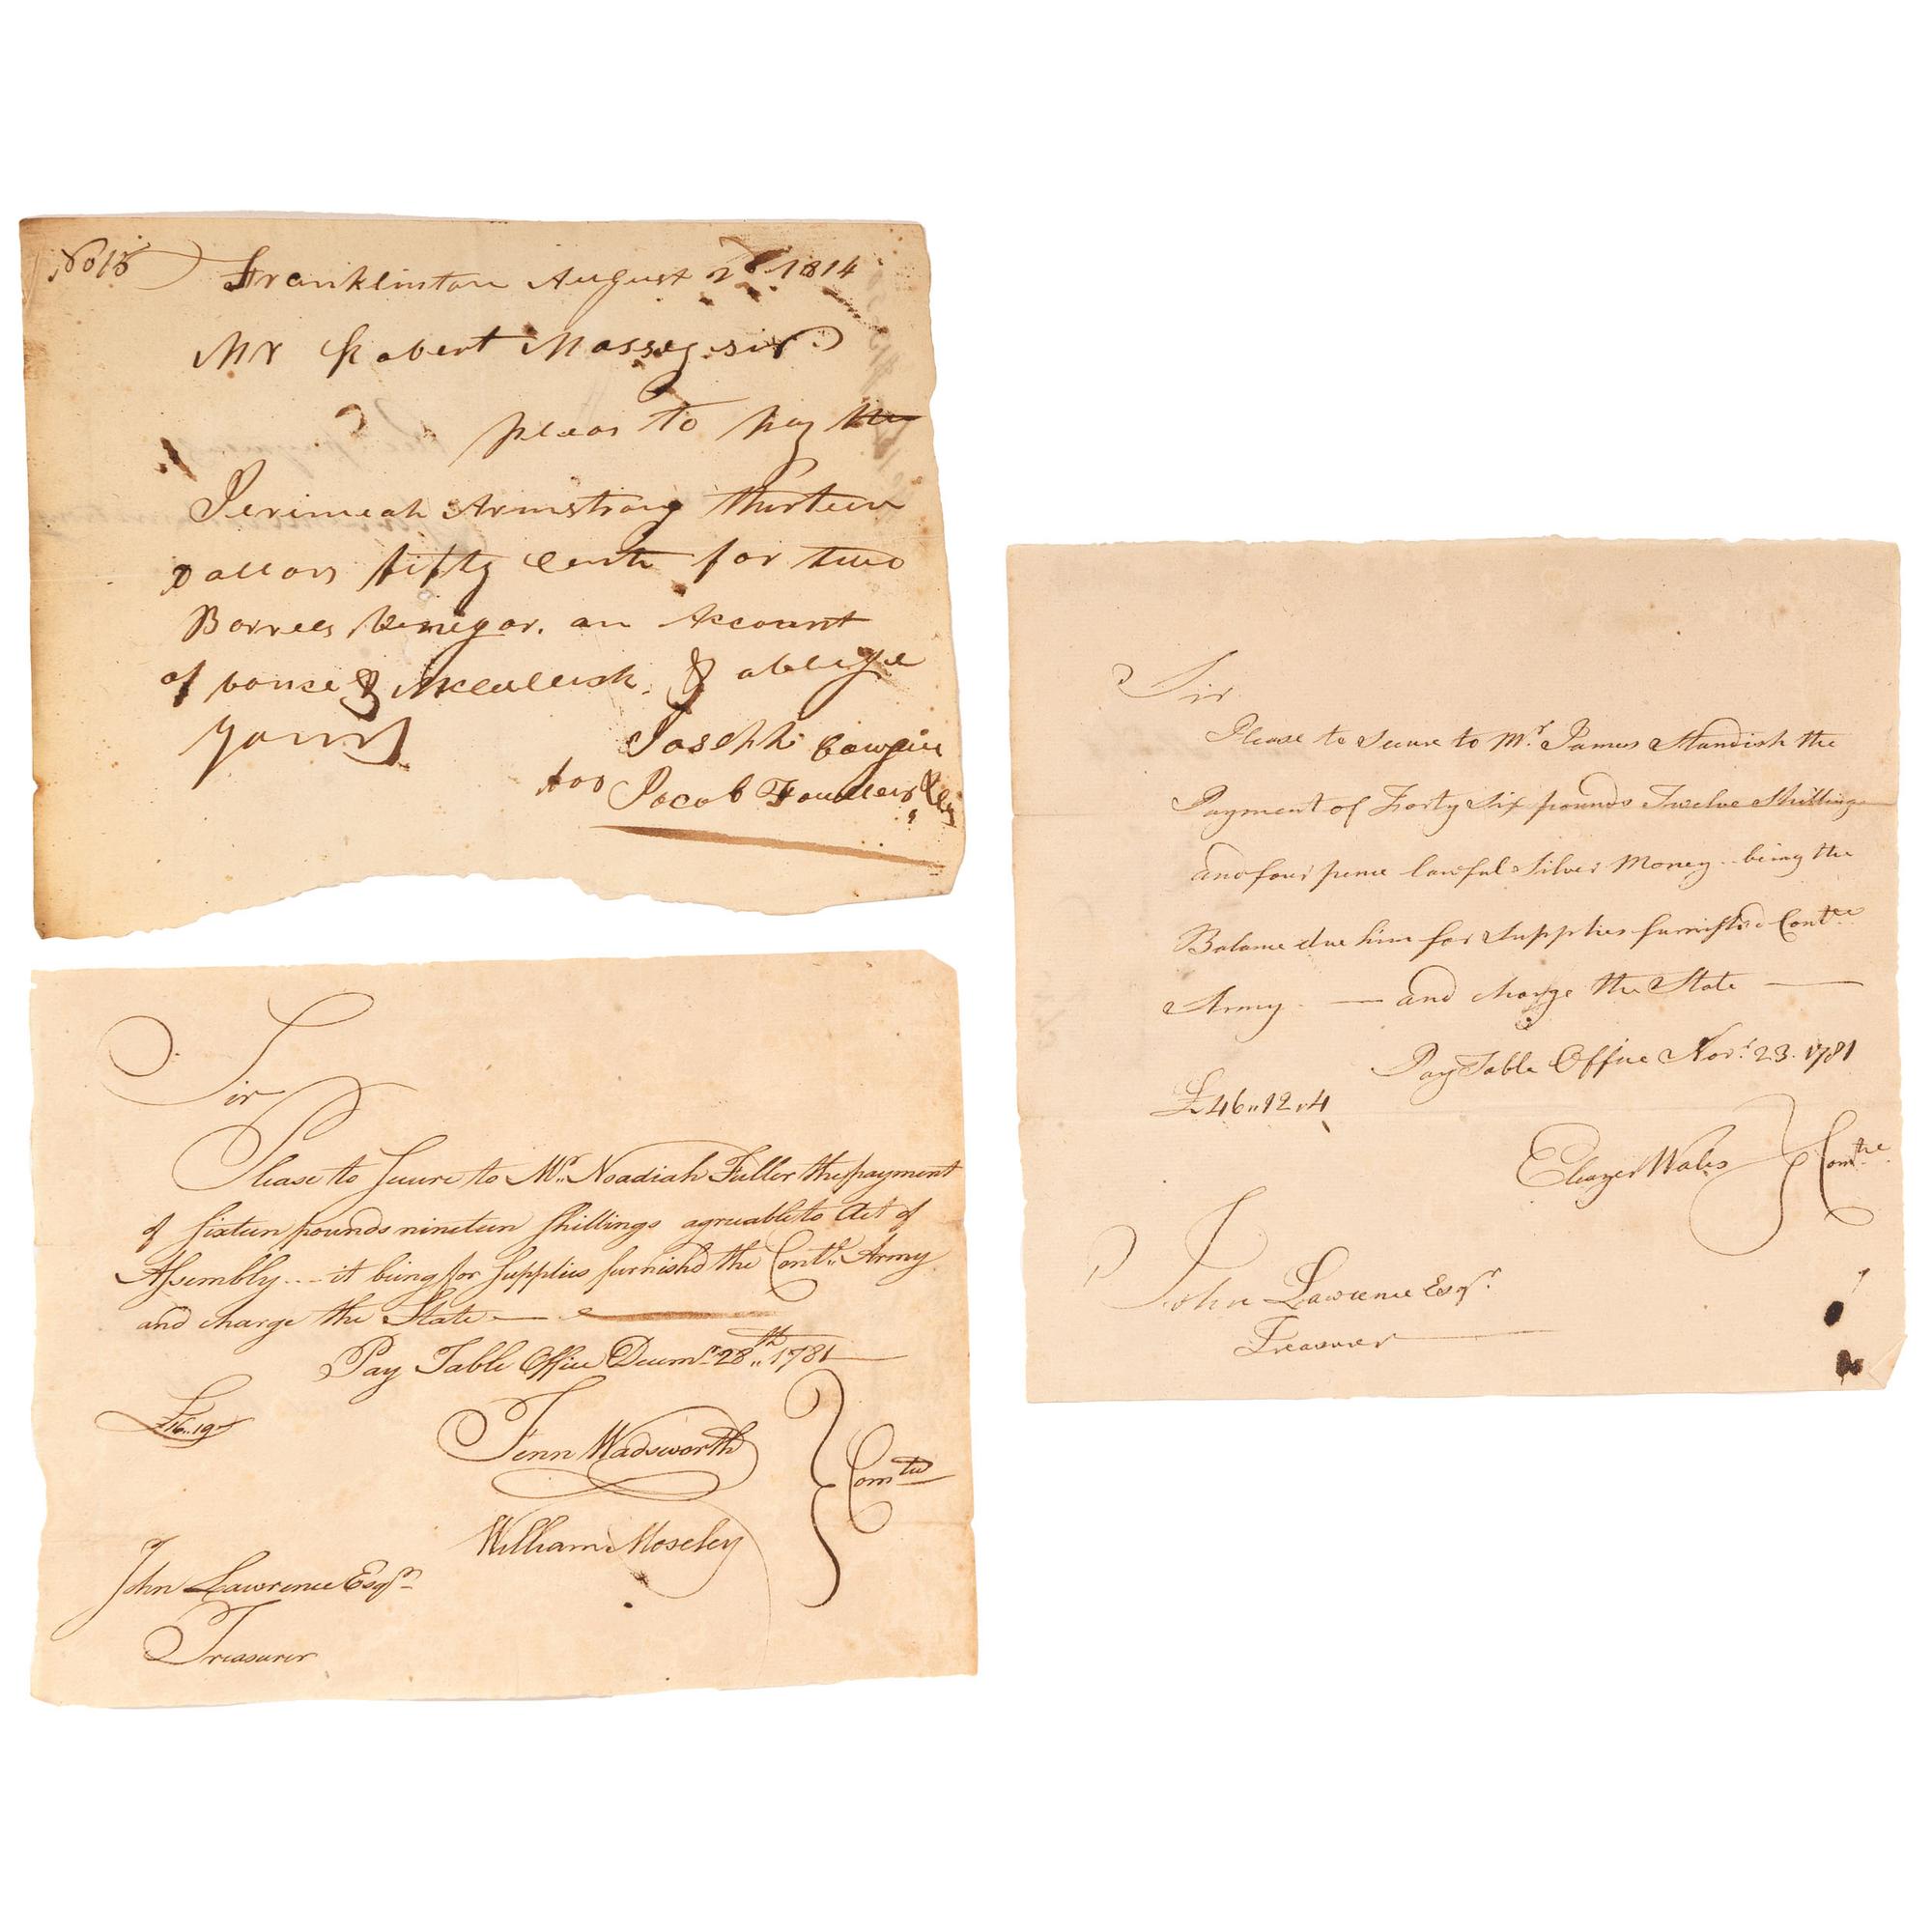 No 15 Franklinton August 2d 1814
Mr Robert Massey sir
pleas to pay the
Jerimeah Armstrong thirteen
Dollars fifty Cents for two
Barrels Venegar. on Account
of & & oblige
yours Joseph
for Jacob Fowler
Sir
Please to Secure to Mr. Noadiah Fuller the payment
of Sixteen pounds nineteen Shillings agreable to Act of
Assembly - it being for Supplies furnishd the Contl. Army
and charge the State
Pay Table Office Decemr. 28th 1781
£16..19
Fenn Wadsworth
Comtee
William Moseley
John Lawrence Esqr.
Treasurer
Sir
Please to Secure to Mr. James Standish the
Payment of Forty Six pounds Twelve Shillings
and four pence lawful Silver Money - being the
Balance due him for Supplies furnishd
Army — and charge the State —
Pay Table Office Novr. 23. 1781
£46..12..4
Eleazer Wales Comtee
John Lawrence Esqr.
Treasurer